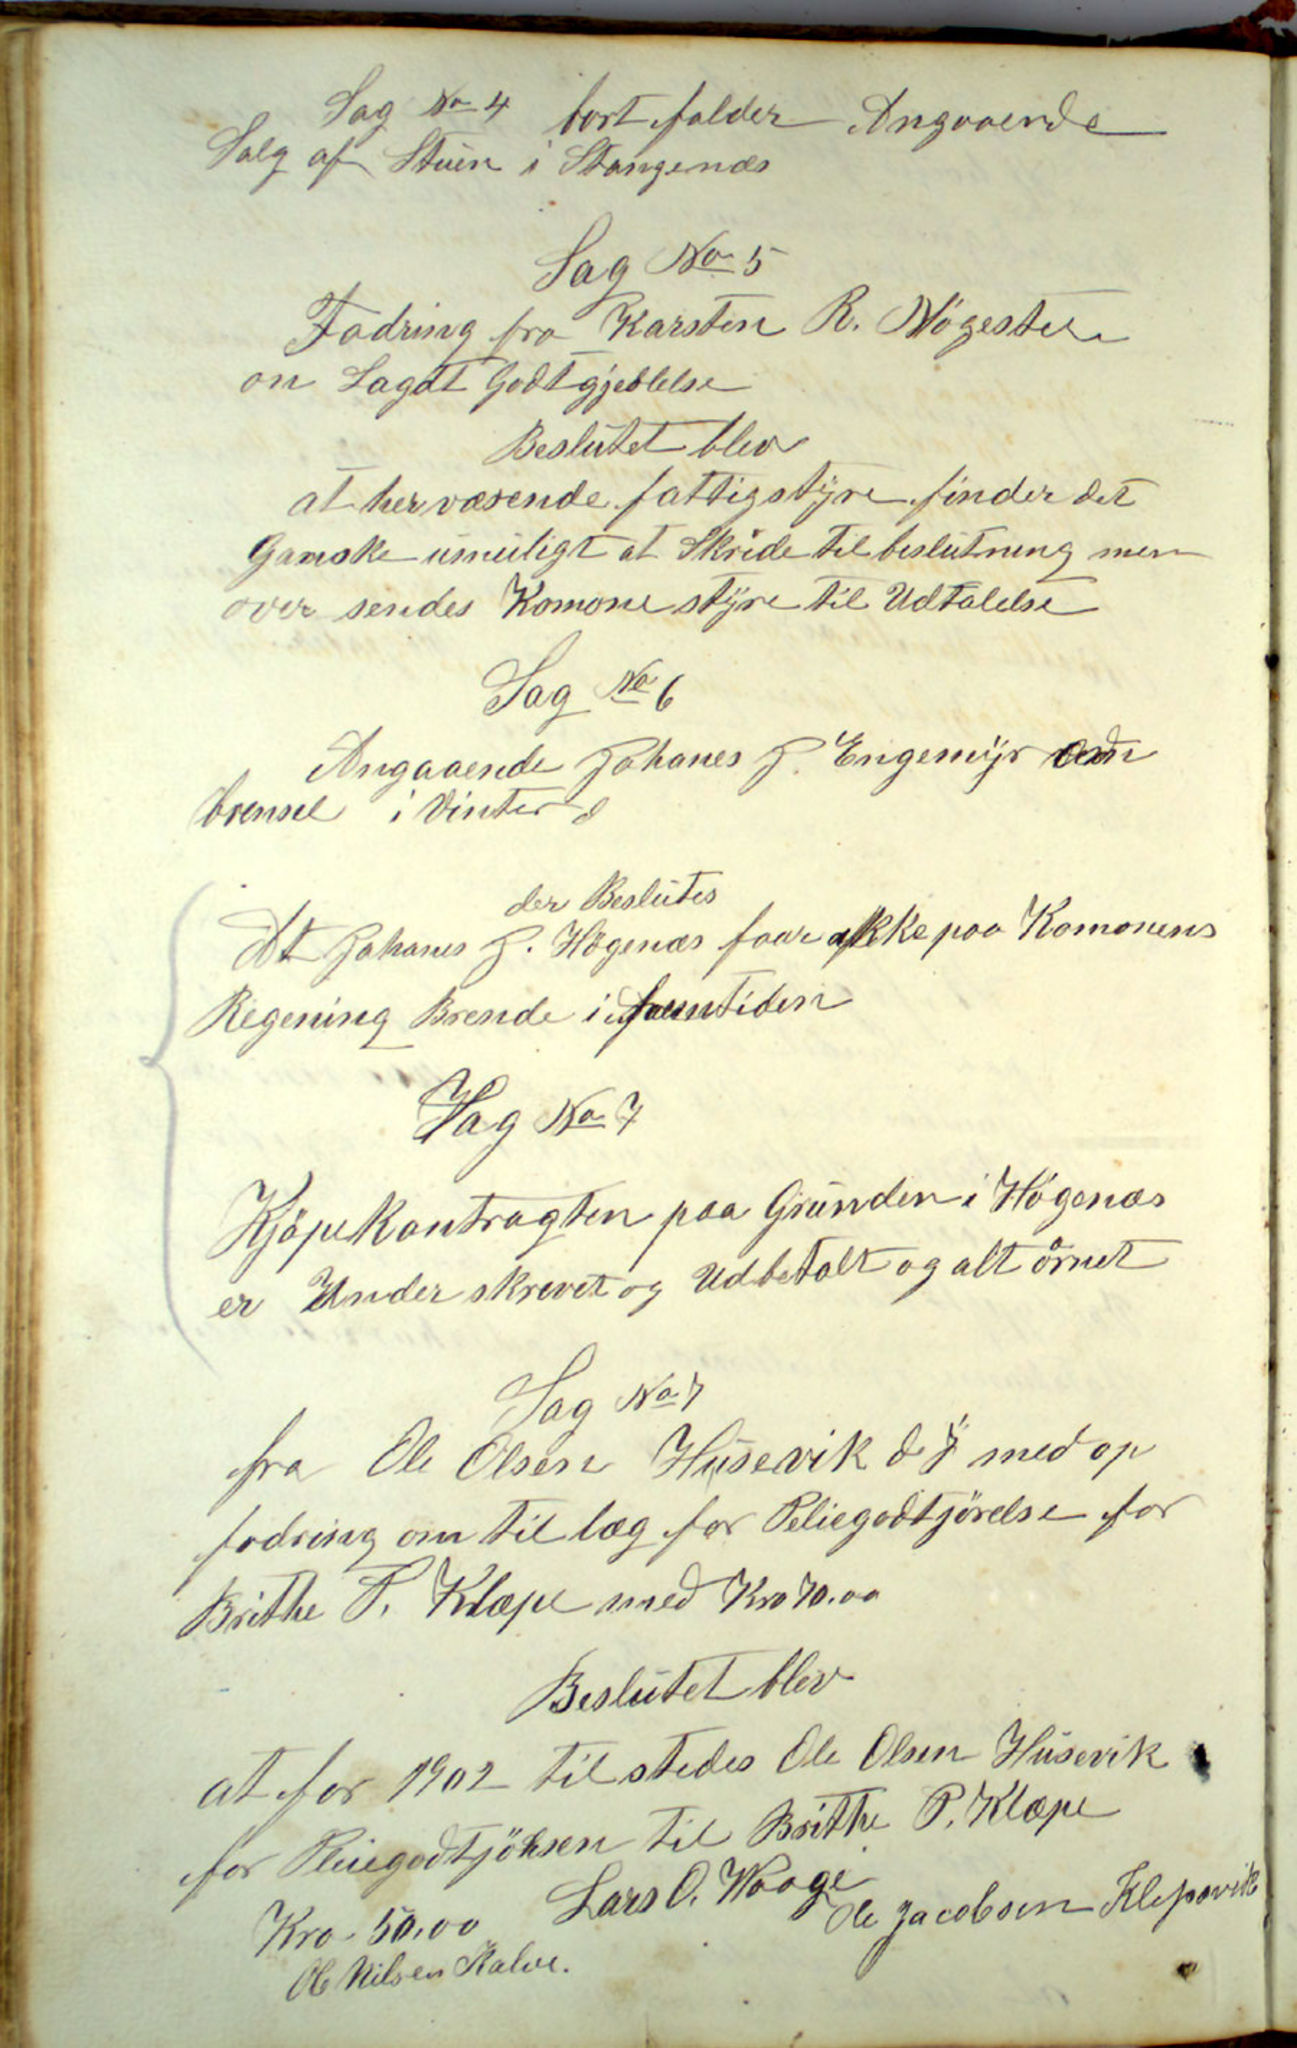 Sag No 4 bort falder Angaaende
Salg af Stuen i Stangenæs
Sag No 5
Fodring fra Karsten R. Nögesteen
on Sagat Godtgjeblelse
Beslutet blev
at her værende fattigstyre finder det
Ganske umuligt at Skride til beslutning men
over sendes Komone styre til Udtalelse
Sag No 6
Angaaende Johanes J. Engemyr om
brensel i Vinter
der Beslutes
At Johanes J. Högenæs faar ikke paa Komonens
Regening Brende i fremtiden
Sag No 7
Kjöpekontragten paa Grunden i Högenæs
er Under skrevet og Udbetalt og alt ornet
Sag No 7
fra Ole Olsen Husevik d med op
fodring om til læg for Peliegodtjörelse for
Brithe P. Klæpe med Kro 70.00
Beslutet blev
at for 1902 til stedes Ole Olsen Husevik
for Pleiegodtjölsen til Brithe P. Klæpe
Kro. 50.00 Lars O. Waage Ole Jacobsen Klepsvik
Ole Nilsen Kalve.